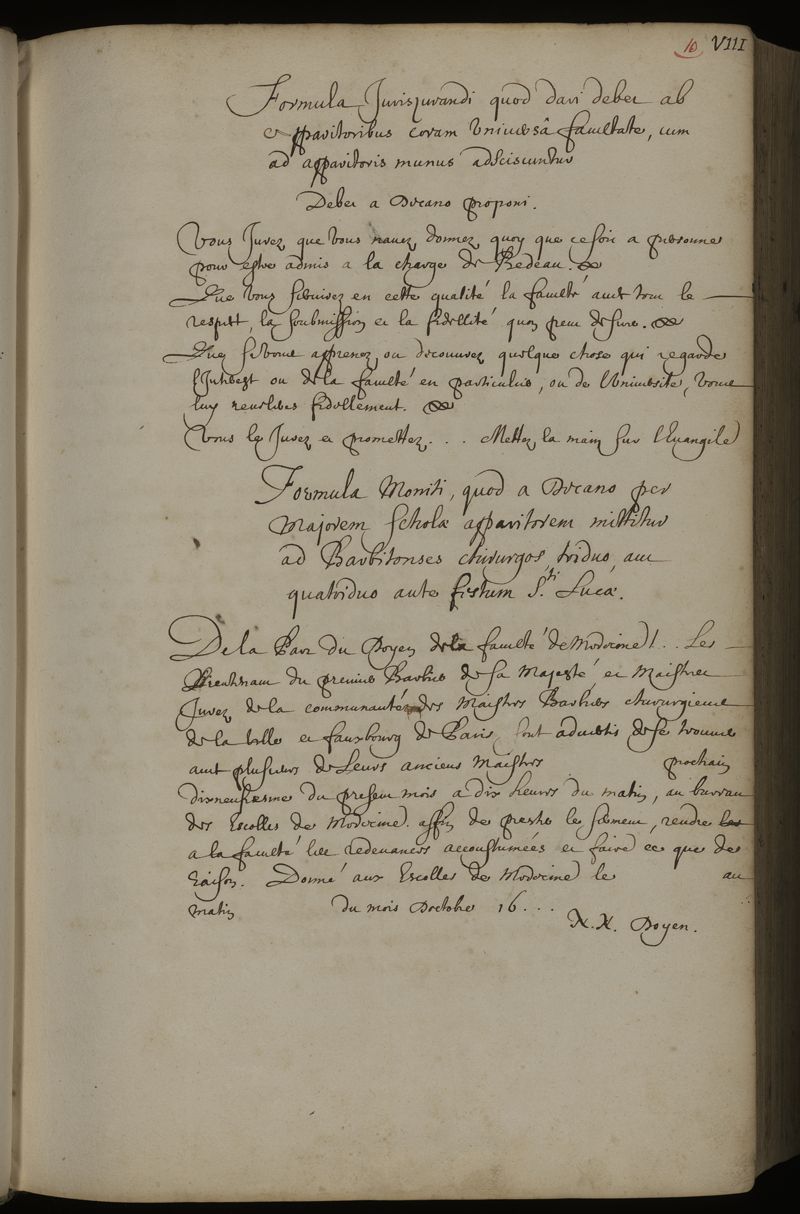 10 VIII
Formula Jurisjurandi quod dari debet ab
apparitoribus coram Universâ facultate, cum
ad apparitoris munus adsciscuntur
Debet a Decano proponi.
Vous Jurez que Vous n'avez donnez quoy que ce soit a personne
pour estre admis a la charge de Bedeau.
Que vous servirez en cette qualité la faculté avec tout le
respect, la soubmission et la fidellité quon peut desirer.
Que si Vous apprenez ou decouvrez quelque chose qui regarde
l'Interest ou de la faculté en particulier, ou de l'Université, Vous
luy revelerez fidellement.
Vous le Jurez et promettez . . . Mettez la main sur l'Evangile
Formula Moniti, quod a Decano per
Majorem scholæ apparitorem mittitur
ad Barbitonses chirurgos triduo, aut
quatriduo ante festum S.ti Lucæ.
De la Part du Doyen de la faculté de Medecine . . Les
Lieutenant du premier Barbier de sa Majesté et Maistres
Jurez de la communauté des Maistres Barbiers chirurgiens
de la ville et fauxbourg de Paris, sont advertis de se trouver
avec plusieurs de Leurs anciens Maistres prochain
dixneufiesme du present mois a dix heures du matin, au bureau
des Escolles de Medecine affin de prester le serment, rendre les
a la faculté les redevances accoustumées et faire ce que de
raison. Donné aux Escolles de Medecine le au
matin du mois Doctobre 16 . . .
N. N. Doyen.